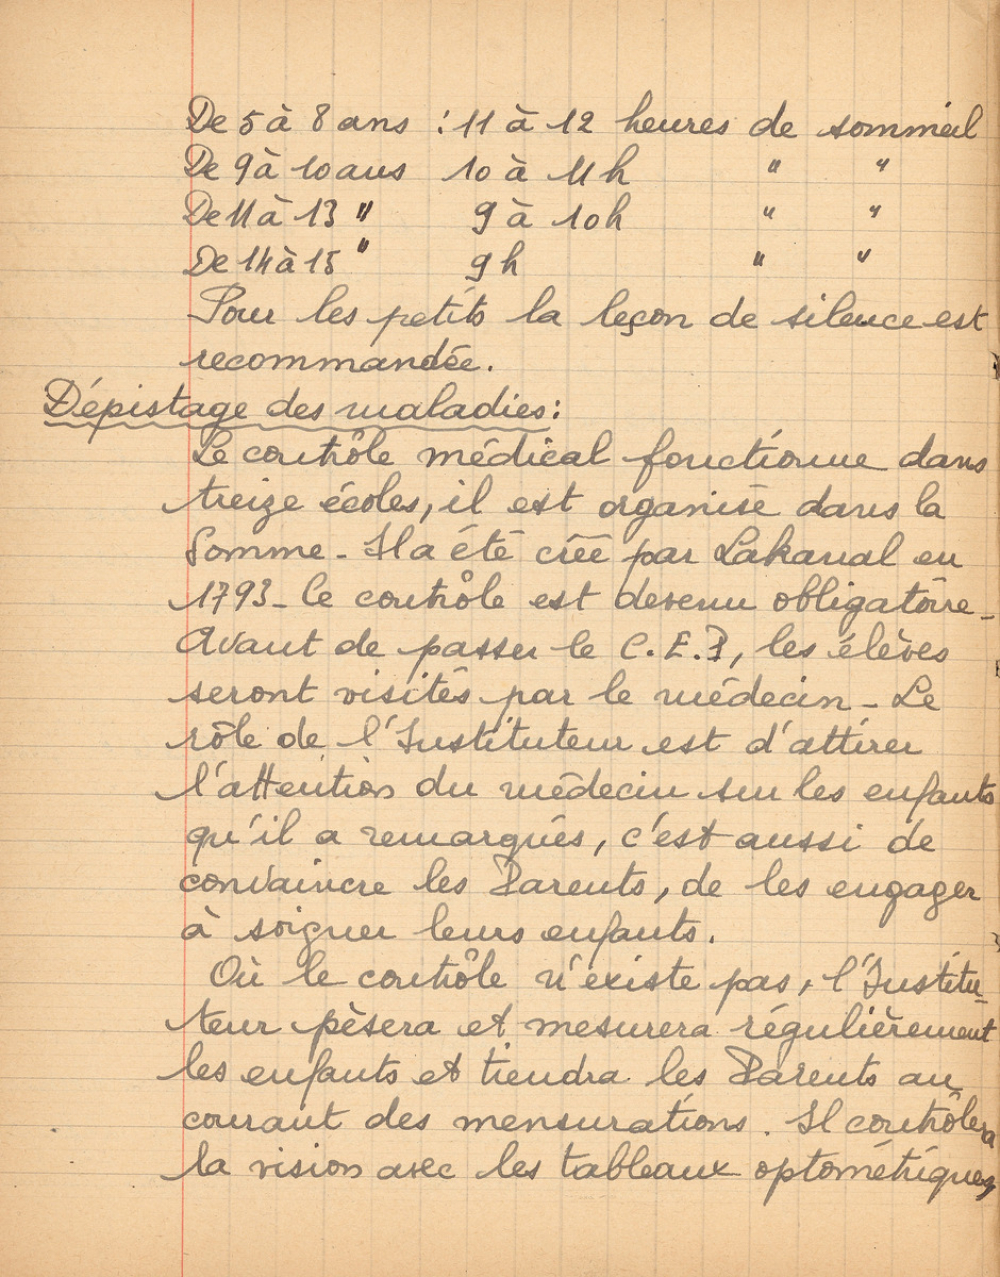 De 5 à 8 ans : 11 à 12 heures de sommeil
De 9 à 10 ans 10 à 11 h " "
De 11 à 13 " 9 à 10 h " "
De 14 à 15 " 9 h " "
Pour les petits la leçon de silence est
recommandée.
Dépistage des maladies :
Le contrôle médical fonctionne dans
treize écoles, il est organisé dans la
Somme - Il a été créé par Lakanal en
1793 - le contrôle est devenu obligatoire -
Avant de passer le C.E.P, les élèves
seront visités par le médecin - Le
rôle de l'Instituteur est d'attirer
l'attention du médecin sur les enfants
qu'il a remarqués, c'est aussi de
convaincre les Parents, de les engager
à soigner leurs enfants.
Où le contrôle n'existe pas, l'Institu-
teur pèsera et mesurera régulièrement
les enfants et tiendra les Parents au
courant des mensurations. Il contrôlera
la vision avec les tableaux optométriques